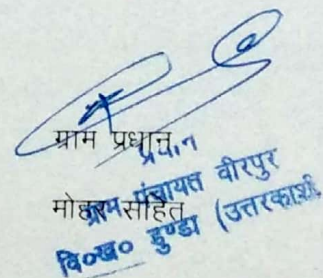 ग्राम प्रधान
प्रधान
मोहर सहित
ग्राम पंचायत वीरपुर
वि०ख० डुण्डा (उत्तरकाशी)